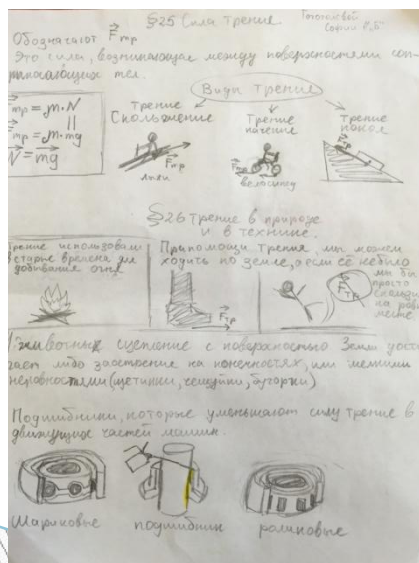 §25 Сила трения
Софии
Обозначают F тр
Это сила, возникающая между поверхностями соп-
рикасающихся тел.
Виды трения
Трение
Скольжение
Трение
качение
Трение
покоя
Fтр = м·N
Fтр = м·mg
N = mg
Fтр
лыжи
Fтр
велосипед
Fтр
§26 трение в природе
и в технике.
Трение использовали
в старые времена для
добывания огня
Припомощи трения, мы можем
ходить по земле, а если её небыло
мы бы
просто
скользи
на
месте
Fтр
Fтр
сцепление с поверхностью Земли
либо заострение на конечностях, или мелкими
неровностями (щетинки, чешуйки, бугорки)
Подшибники, которые уменьшают силу трение в
движущих частей машин.
Шариковые
подшибник
роликовые